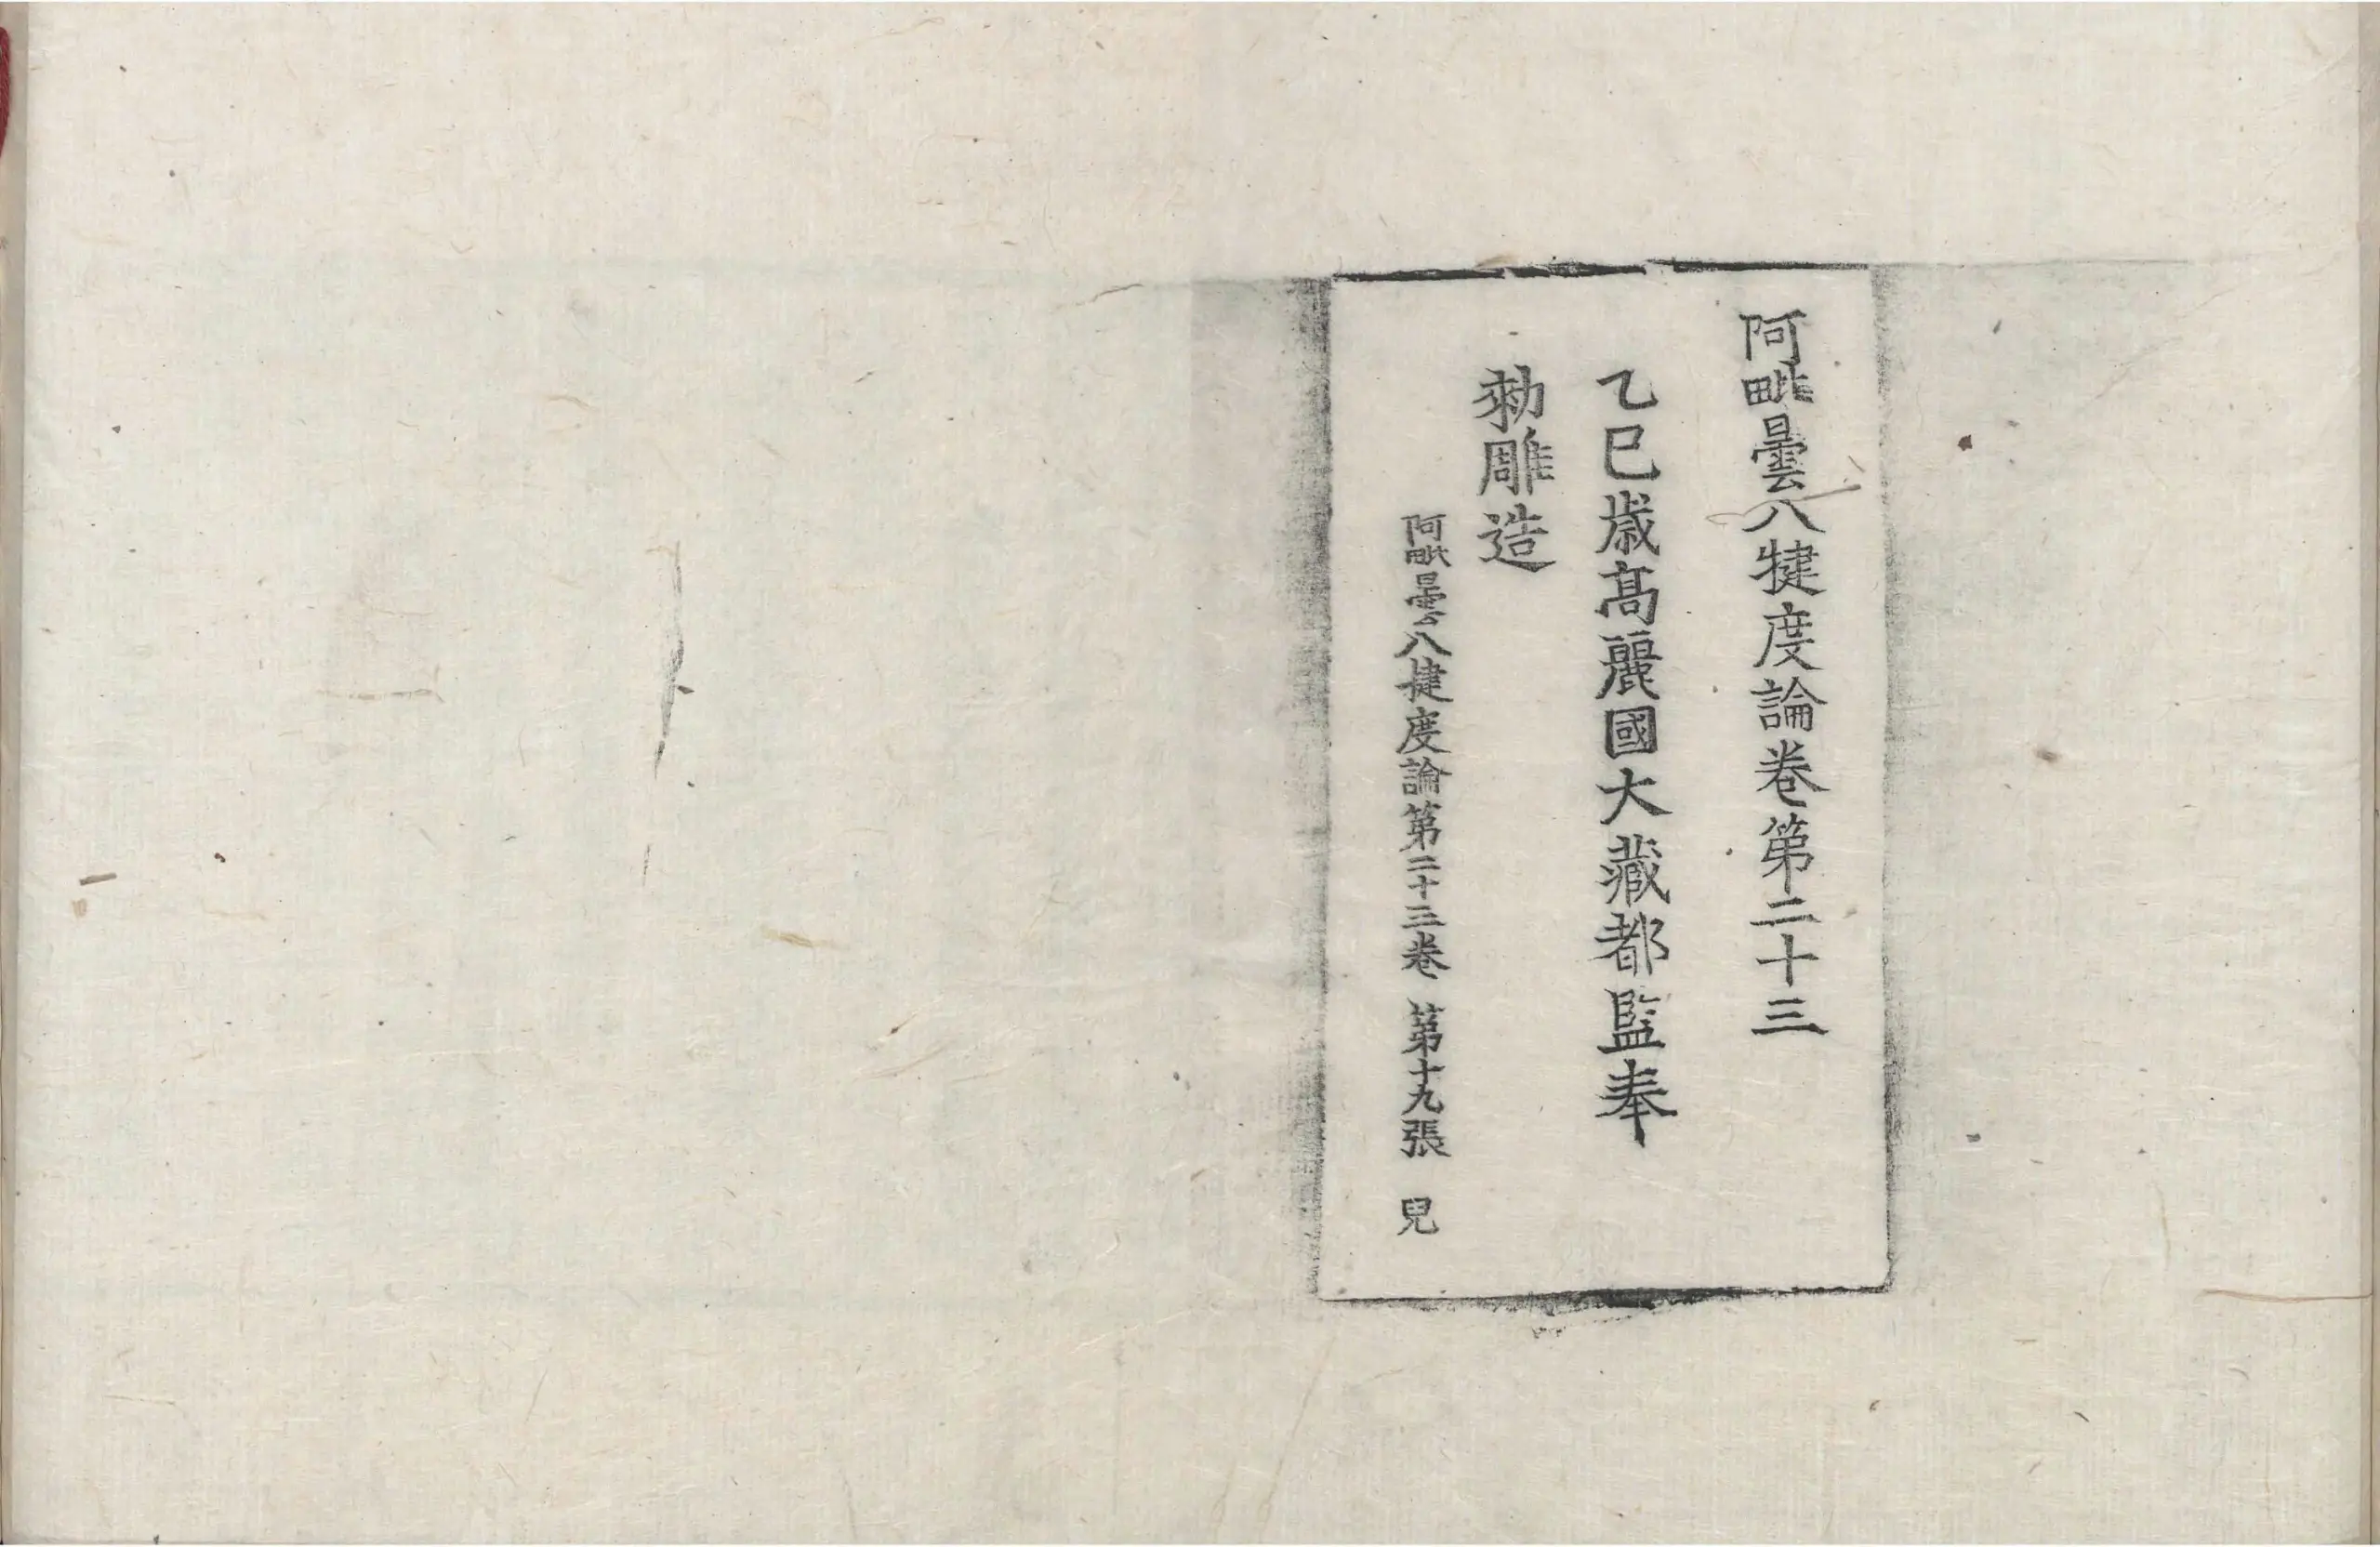 阿毗曇八犍度論卷第二十三
乙巳歲高麗國大藏都監奉
勑雕造
阿毗曇八揵度論第二十三卷 第十九張 兒